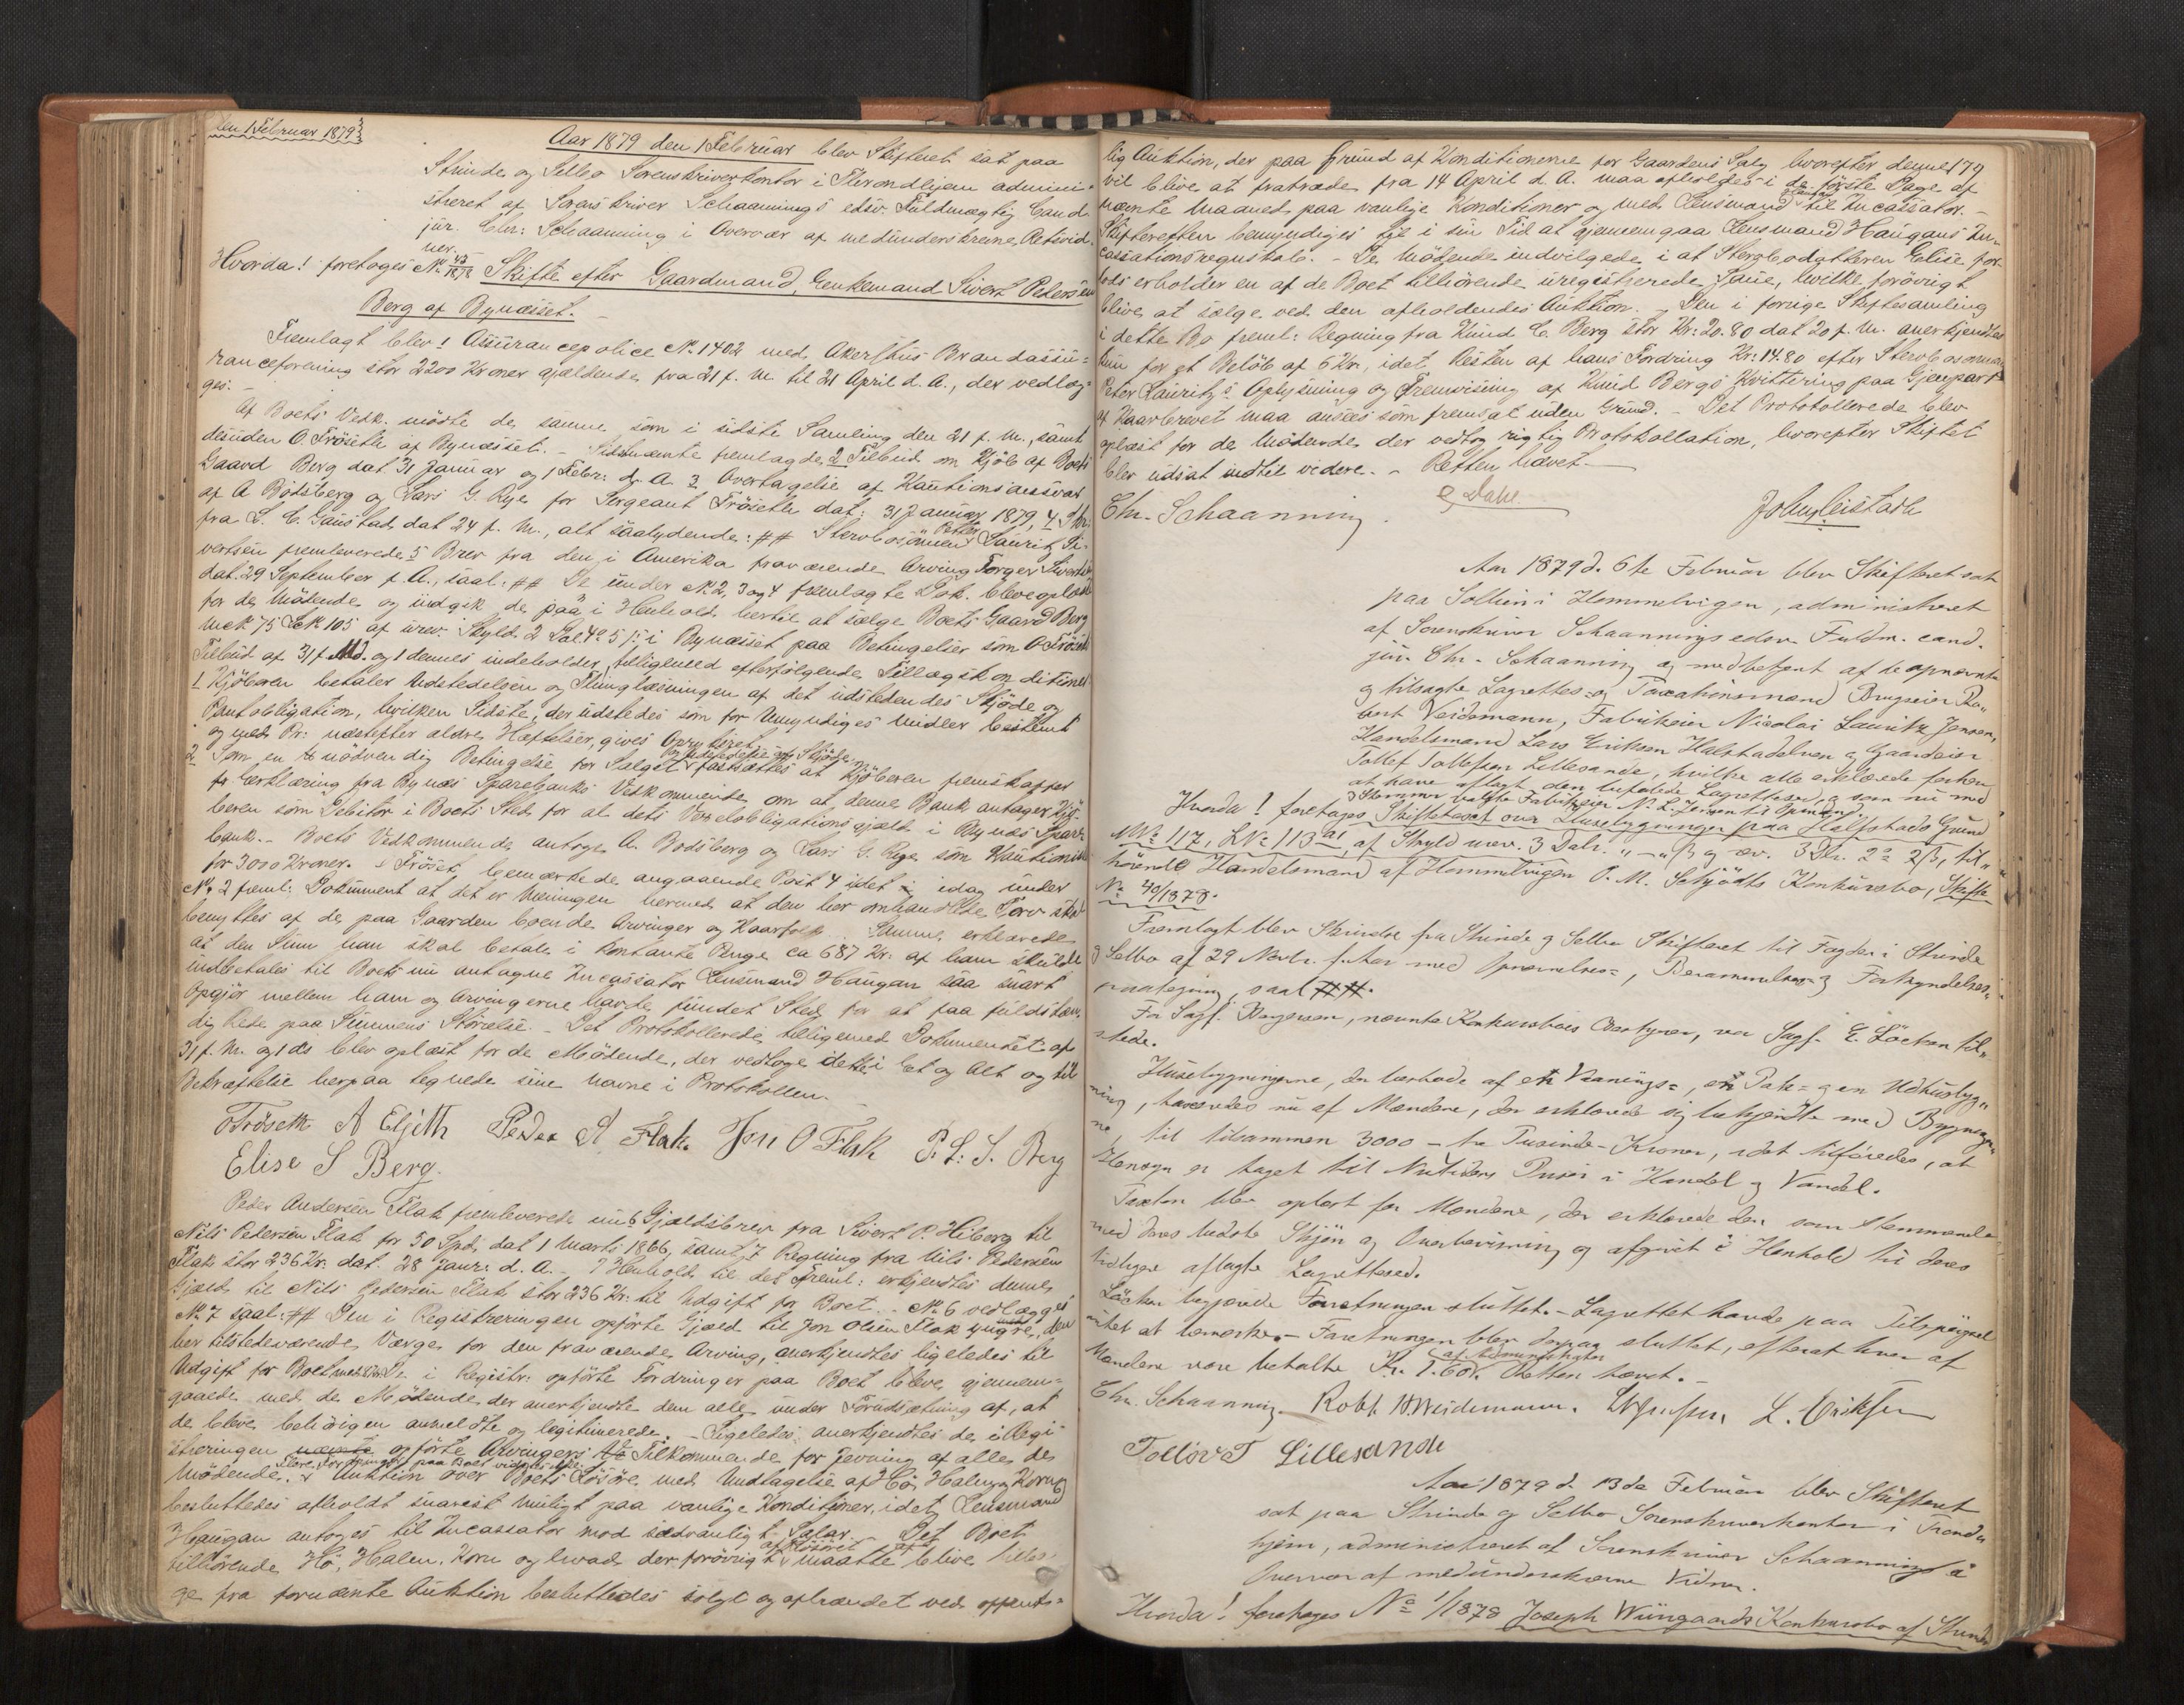 den 1 Februar 1879
Aar 1879 den 1 Februar blev Skifteret sat paa
Strinde og Selbo Sorenskriverkontor i Throndhjem admini-
streret af Sorenskriver Schaannings edsv. Fuldmægtig Cand.
jur. Chr: Schaanning i Overvær af medunderskrevne Retsvid-
ner.
Hvorda! foretages No 43/1878 Skifte efter Gaardmand, Enkemand Sivert Petersen
Berg af Bynæsset.
Fremlagt blev 1 Assurancepolice No 1402 med Akershus Brandassu-
ranceforening stor 2200 Kroner gjældende fra 21 f. M. til 21 April d. A., der vedlæg-
ges.
Af Boets Vedk. mødte de samme som i sidste Samling den 21 f. M., samt
desuden O. Frøseth af Bynæsset. - Sidstnævnte fremlagde 2 Tilbud om Kjøb af Boets
Gaard Berg dat. 31 Januar og 1 Febr: d. A. 3 Overtagelse af Kautionsansvar
af A Bødsberg og Lars G. Rye for Sergeant Frøseth dat: 31 Januar 1879, 4 Skr.
fra L. C. Gaustad, dat 24 f. M., alt saalydende: ## Stervbosønnen Petter Lauritz Si-
vertsen fremleverede 5 Brev fra den i Amerika fraværende Arving Torger Sivertsen
dat. 29 September f. A., saal: ## De under No 2, 3 og 4 fremlagte Dok. bleve oplæst
for de Mødende og indgik de paa i Henhold hertil at sælge Boets Gaard Berg
M.No 75 L.No 105 af urev. Skyld 2 Dal. 4 o 5 ß i Bynæsset paa Betingelser som O. Frøseths
Tilbud af 31 f. Md. og 1 dennes indeholder, tilligemed efterfølgende Tillægskonditioner
1 Kjøberen betaler Udstedelsen og Thinglæsningen af det udstedendes Skjøde og
Pantobligation, hvilken Sidste, der udstedes som for Umyndiges Midler bestemt
og med Pr: næstefter ældre Hæftelser, gives Oprykket
2 Som en nødvendig Betingelse for Salget og Udstedelse af Skjøde fastsættes at Kjøberen fremskaffer
Erklæring fra Bynæs Sparebanks Vedkommende om at denne Bank antager Kjø-
beren som Debitor i Boets Sted for al dets Vexelobligationsgjæld i Bynæs Spare-
bank. - Boets Vedkommende antoge A. Bødsberg og Lars G. Rye som Kautionister
for 3000 Kroner. Frøset bemærkede angaaende Post 4 i det idag under
No 2 freml: Dokument at det er Meningen hermed at den her omhandlede Torv skal
benyttes af de paa Gaarden boende Arvinger og Kaarfolk. Samme erklærede
at den Sum han skal betale i kontante Penge ca 687 Kr. af ham skulde
indbetales til Boets nu antagne Incassator Lensmand Haugan saa snart
Opgjør mellem ham og Arvingerne havde fundet Sted for at faa fuldstæn-
dig Rede paa Summens Størrelse. - Det Protokollerede tilligemed Dokumentet af
31 f. M. og 1 ds blev oplæst for de Mødende, der vedtoge dette i Et og Alt og til
Bekræftelse herpaa tegnede sine Navne i Protokollen.
O Frøseth A Eljeth Peder A Flak. Jon O Flak P. L. S. Berg
Elise S Berg.
Peder Andersen Flak fremleverede nu 6 Gjældsbrev fra Sivert P. Hiberg til
Nils Petersen Flak for 30 Spd. dat 1 Marts 1866, samt 7 Regning fra Nils Pedersen
Flak stor 236 Kr. dat. 28 Januar d. A. - I Henhold til det Freml: erkjendtes denne
Gjæld til Nils Pedersen Flak stor 236 Kr. til Udgift for Boet. - No 6 vedlægges
No 7 saal: ## Den i Registreringen opførte Gjæld til Jon Olsen Flak yngre, den
her tilstedeværende Værge for den fraværende Arving, anerkjendtes ligeledes til
Udgift for Boet De i Registr: opførte Fordringer paa Boet bleve gjennem-
gaaede med de Mødende der anerkjendte dem alle under Forudsætning af, at
de bleve behørigen anmeldte og legitimerede. - Ligeledes anerkjendtes de i Regi-
streringen nævnte opførte Arvingers Tilkommende for Jevning af alle de
Mødende. Flere Fordringer paa Boet vidstes ikke. Auktion over Boets Løsøre med Undtagelse af Hø, Halm og Korn
besluttedes afholdt snarest muligt paa vanlige Konditioner, idet Lensmand
Haugan antoges til Incassator mod sædvanligt Salar. - Det Boet
tilhørende Hø, Halm, Korn og hvad der forøvrigt af Løsøret maatte blive tilba-
ge fra fornævnte Auktion besluttedes solgt og afhændet ved offent-
179
lig Auktion, der paa Grund af Konditionerne for Gaardens Salg hvorefter denne
vil blive at fratræde fra 14 April d. A. maa afholdes i de første Dage af
nævnte Maaned paa vanlige Konditioner og med Lensmand Haugan til Incassator. -
Skifteretten bemyndiges til i sin Tid at gjennemgaa Lensmand Haugans In-
cassationsregnskab. - De Mødende indvilgede i at Stervbodatteren Elise for-
lods erholder en af de Boet tilhørende uregistrerede Saue, hvilke forøvrigt
blive at sælge ved den afholdendes Auktion. - Den i forrige Skiftesamling
i dette Bo freml: Regning fra Knud C. Berg stor Kr: 20.80 dat 20 f. M. anerkjendtes
kun for et Beløb af 6 Kr., idet Resten af hans Fordring Kr: 14.80 efter Stervbosønnen
Peter Lauritz's Oplysning og Fremvisning af Knud Bergs Kvittering paa Gjenpart
af Kaarbrevet maa ansees som fremsat uden Grund. - Det Protokollerede blev
oplæst for de Mødende der vedtog rigtig Protokollation, hvorefter Skiftet
blev udsat indtil videre. - Retten hævet.
Chr. Schaanning. E Dahl John Leistad
Aar 1879 d. 6te Februar blev Skifteret sat
paa Sollien i Hommelvigen, administreret
af Sorenskriver Schaannings edsv. Fuldm. cand.
jur. Chr. Schaanning og medbetjent af de opnævnte
og tilsagte Lagrettes- og Taxationsmænd Brugseier Ro-
bert Veidemann, Fabrikeier Nicolai Lauritz Jensen,
Handelsmand Lars Eriksen Halstadelven og Gaardeier
Tollef Tollefsen Lillesande, hvilke alle erklærede forhen
at have aflagt den befalede Lagretteed, og som nu med
3 Stemmer valgte Fabrikeier N. L. Jensen til Formand.
Hvorda! foretages Skiftetaxt over Husebygninger paa Halstads Grund
M.No 117, L.No 113 a1, af Skyld urev. 3 Dalr. " - " ß og rev. 3 Dlr. 2 o 2 ß, til-
hørende Handelsmand af Hommelvigen O. M. Schjødts Konkursbo, Skifte
No 40/1878.
Fremlagt blev Skrivelse fra Strinde og Selbo Skifteret til Fogden i Strinde
og Selbo af 29 Novbr. f. Aar med Opnævnelses-, Berammelses- og Forkyndelses-
paategning, saal ##.
For Sagf. Borgersen, nævnte Konkursboes Bestyrer, var Sagf. E. Løcken til-
stede.
Husebygningerne, der bestode af en Vaanings-, en Pak- og en Udhusbyg-
ning, taxeredes nu af Mændene, der erklærede sig bekjendte med Bygninger-
ne, til tilsammen 3000 - tre Tusinde - Kroner, idet tilføiedes, at
Hensyn er taget til Nutidens Priser i Handel og Vandel.
Taxten blev oplæst for Mændene, der erklærede den som stemmende
med deres bedste Skjøn og Overbevisning og afgivet i Henhold til deres
tidligere aflagte Lagretteed.
Løcken begjærede Forretningen sluttet. - Lagrettet havde paa Tilspørgsel
intet at bemærke. - Forretningen blev derpaa sluttet, efterat hver af
Mændene vare betalte Kr. 1.60. af Administrator Retten hævet. -
Chr. Schaanning. Robt. H Weidemann. NLJensen L. Eriksen
Tollov T Lillesande
Aar 1879 d. 13de Februar blev Skifteret
sat paa Strinde og Selbo Sorenskriverkontor i Trond-
hjem, administreret af Sorenskriver Schaanning i
Overvær af medunderskrevne Vidner.
Hvorda! foretages No 1/1878 Joseph Wiingaards Konkursbo af Strinde